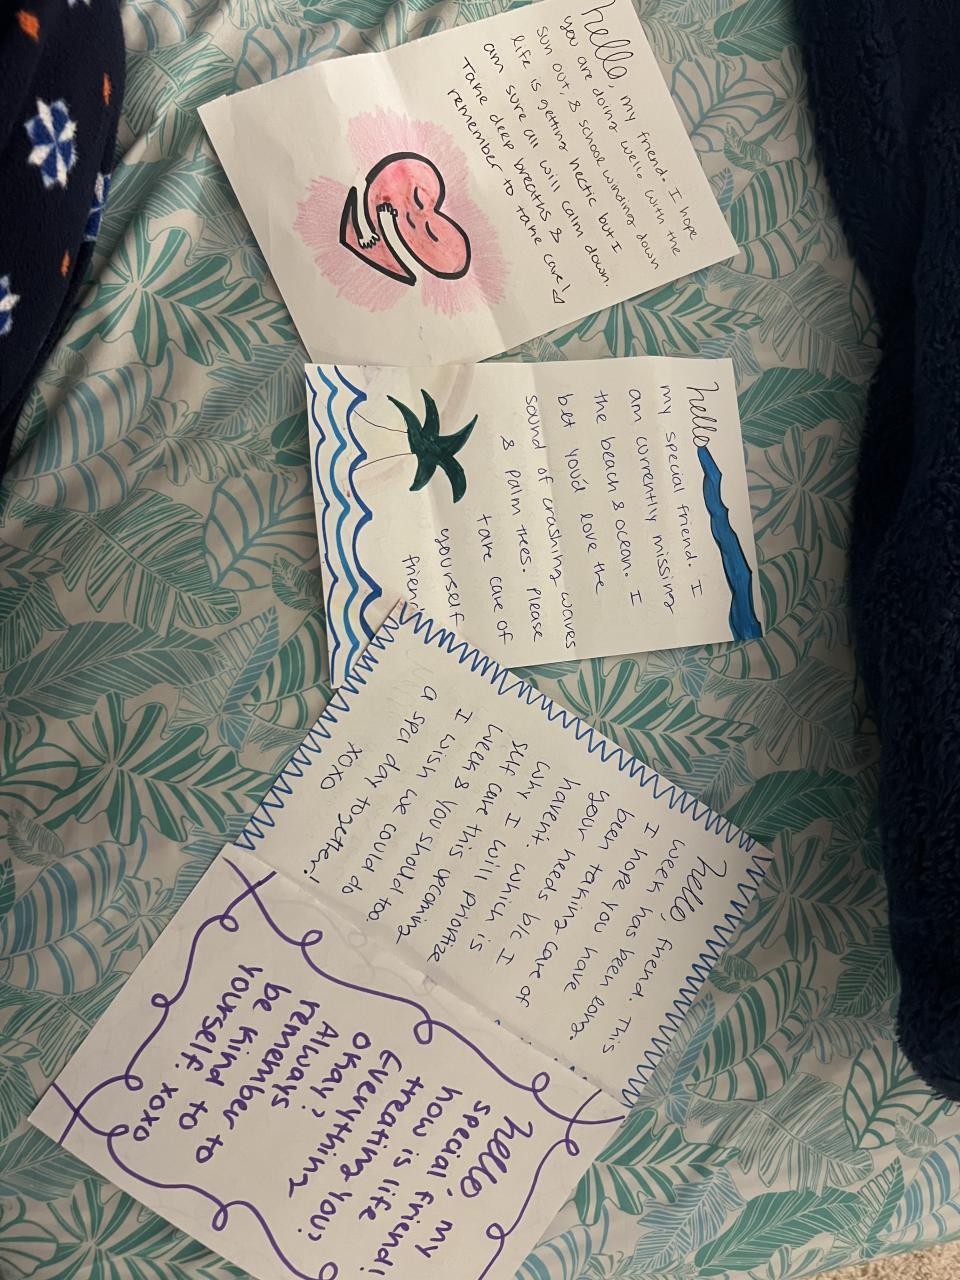 hello, my friend. I hope
you are doing well. With the
sun out, & school winding down
life is getting hectic but I
am sure all will calm down.
Take deep breaths &
remember to take care!
hello
my special friend. I
am currently missing
the beach & ocean. I
bet you'd love the
sound of crashing waves
& palm trees. Please
take care of
yourself
friend
hello, friend. This
week has been long.
I hope you have
been taking care of
your needs b/c I
haven't. Which is
why I will prioritze
self care this upcoming
week & you should too.
I wish we could do
a spa day together!
xoxo
hello, my
special friend!
how is life
treating you?
Everythinn
okay?
Always
remember to
be kind to
yourself. xoxo